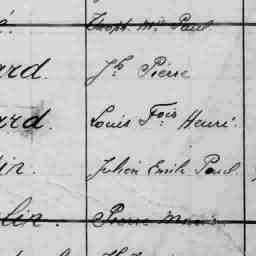 Paul.
ard. Jh. Pierre
ard. Louis Fois Henri.
in. Julien Emile Paul
lin. Pierre Marie